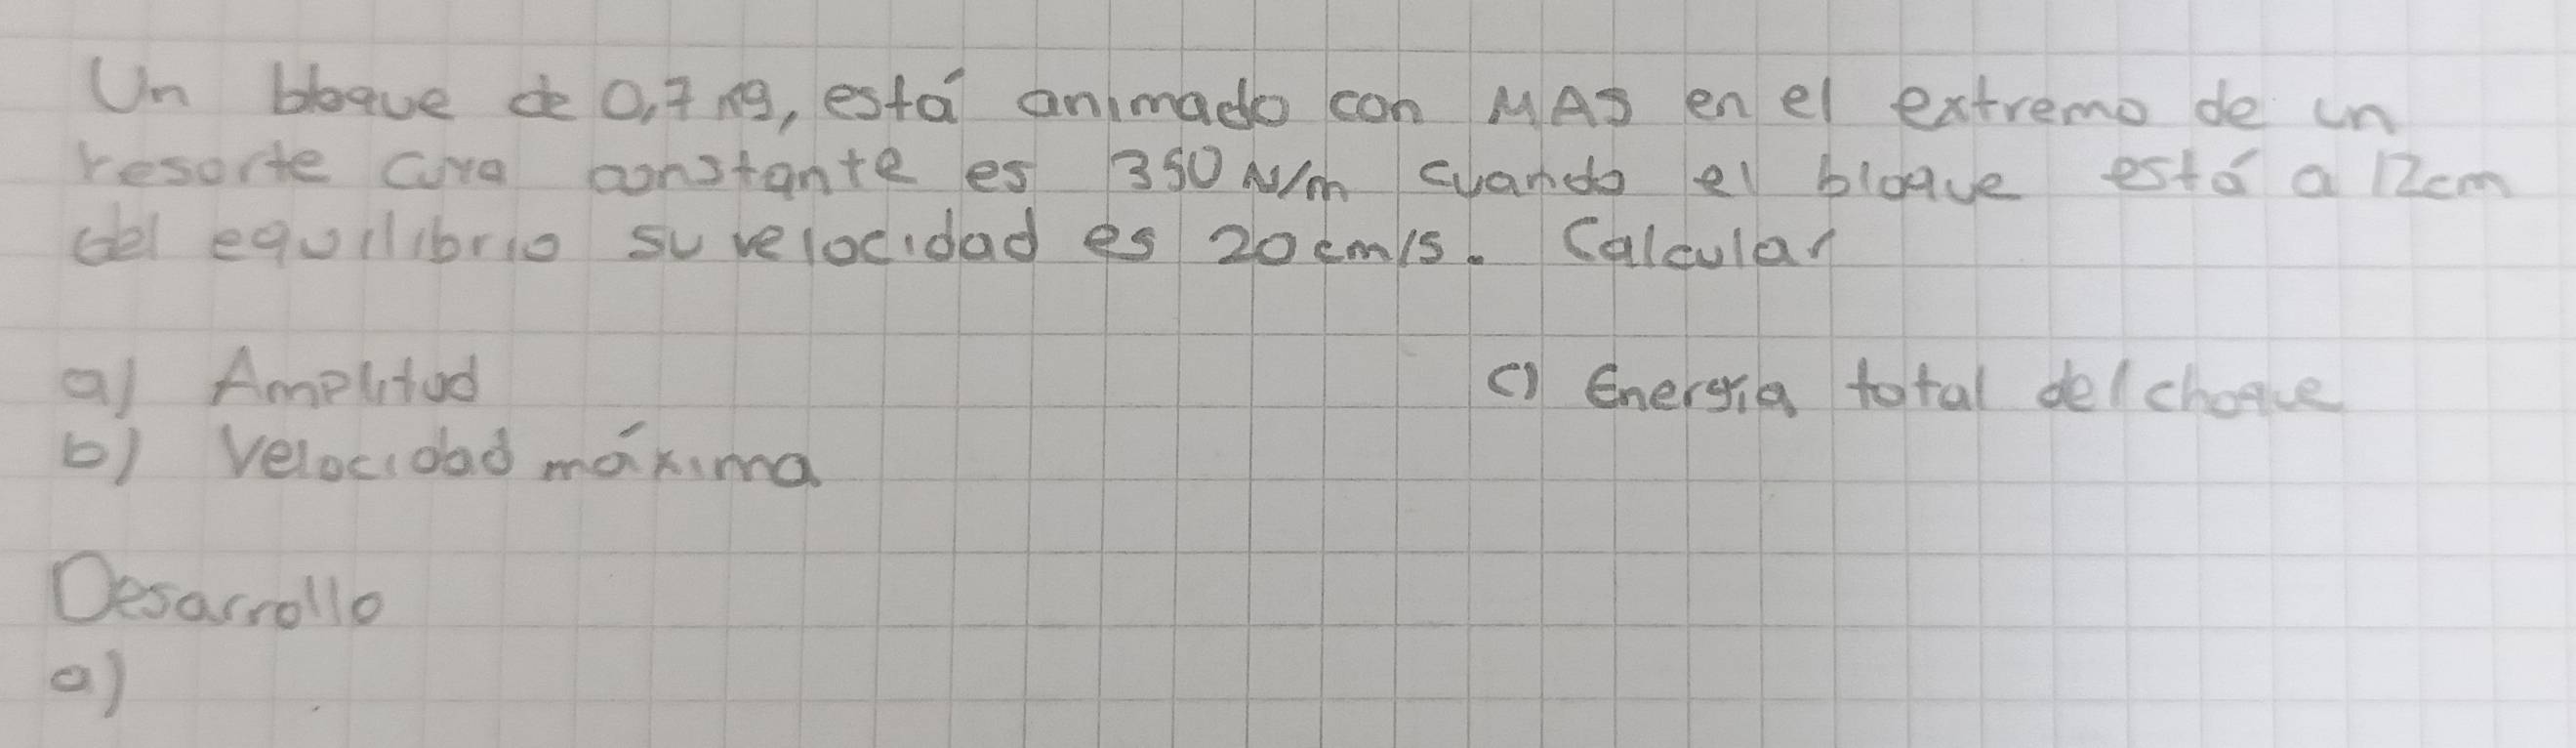 Un bloque de 0,7 kg, está animado con MAS en el extremo de un
resorte cuya constante es 350 N/m cuando el bloque está a 12cm
del equilibrio su velocidad es 20 cm/s. Calcular
a) Amplitud
c) Energía total del choque
b) Velocidad máxima
Desarrollo
a)